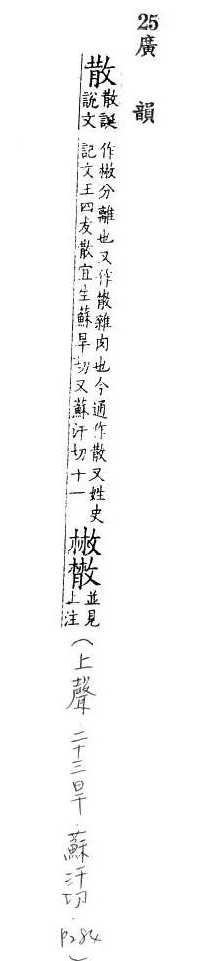 25廣韻
散 散誕
說文
作㪔分離也又作𢿱雜肉也今通作散又姓史
記文王四友散宜生蘇旱切又蘇汗切十一
㪔𢿱 並見
上注
（上聲．二十三旱．蘇汗切．P284）